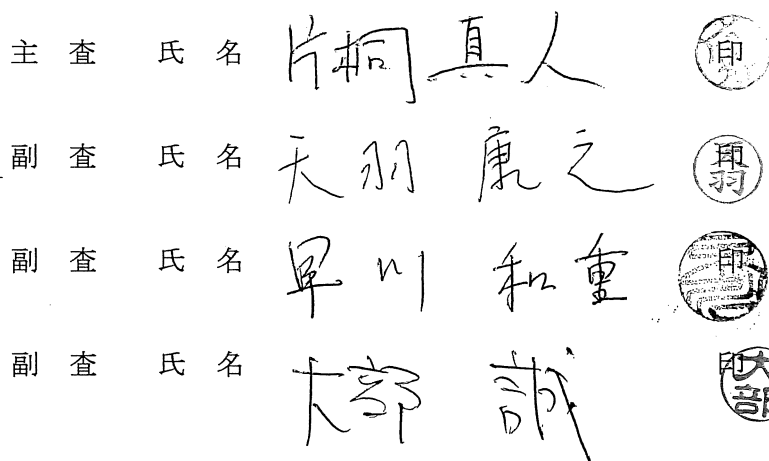 主査 氏名 片桐真人 印
副査 氏名 天羽康之 印
副査 氏名 早川和重 印
副査 氏名 大部誠 印 大部